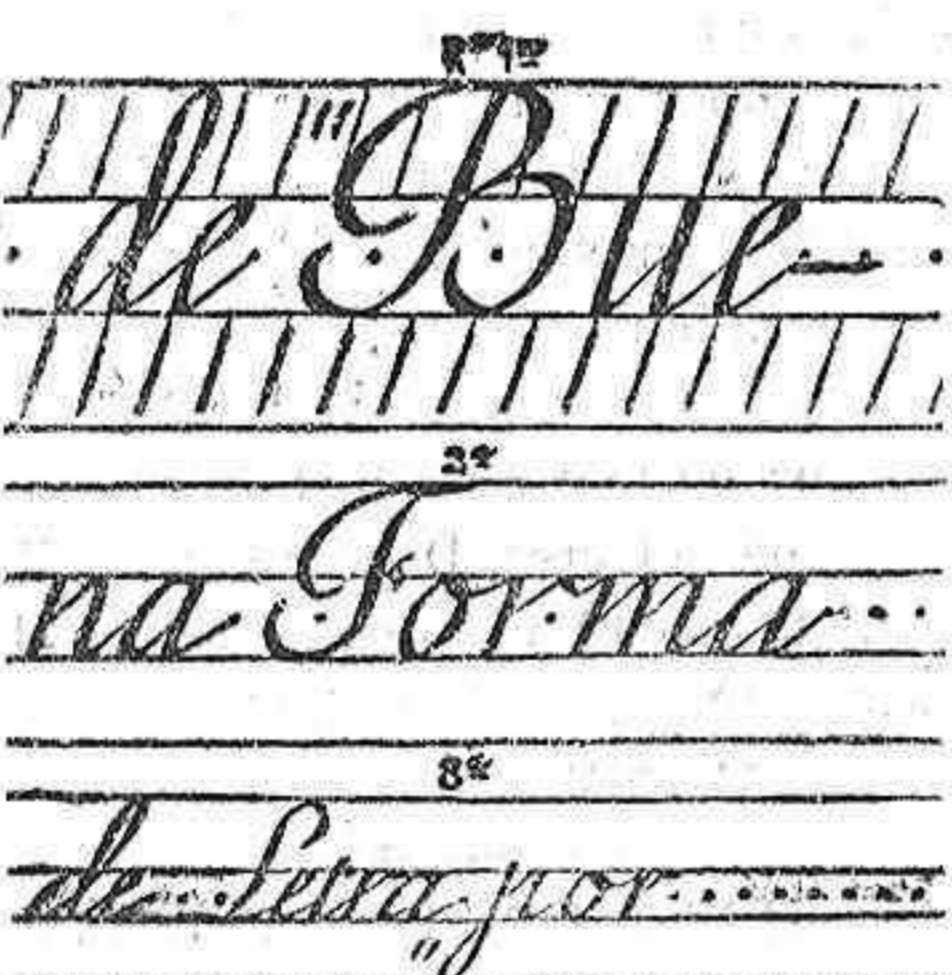 de " Bue-
2ª
na Forma
8ª
de Letra por